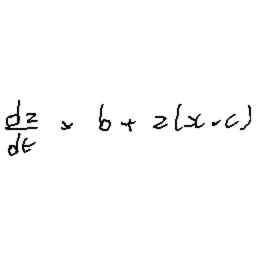 dz/dt = b + z(x - c)